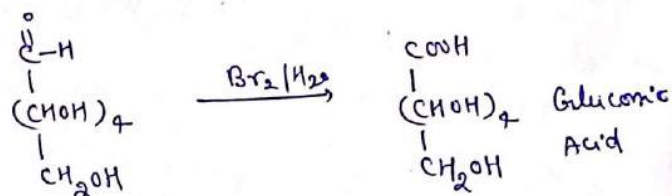 O
C-H
(CHOH)4
CH2OH
Br2/H2O
COOH
(CHOH)4
CH2OH
Gluconic
Acid